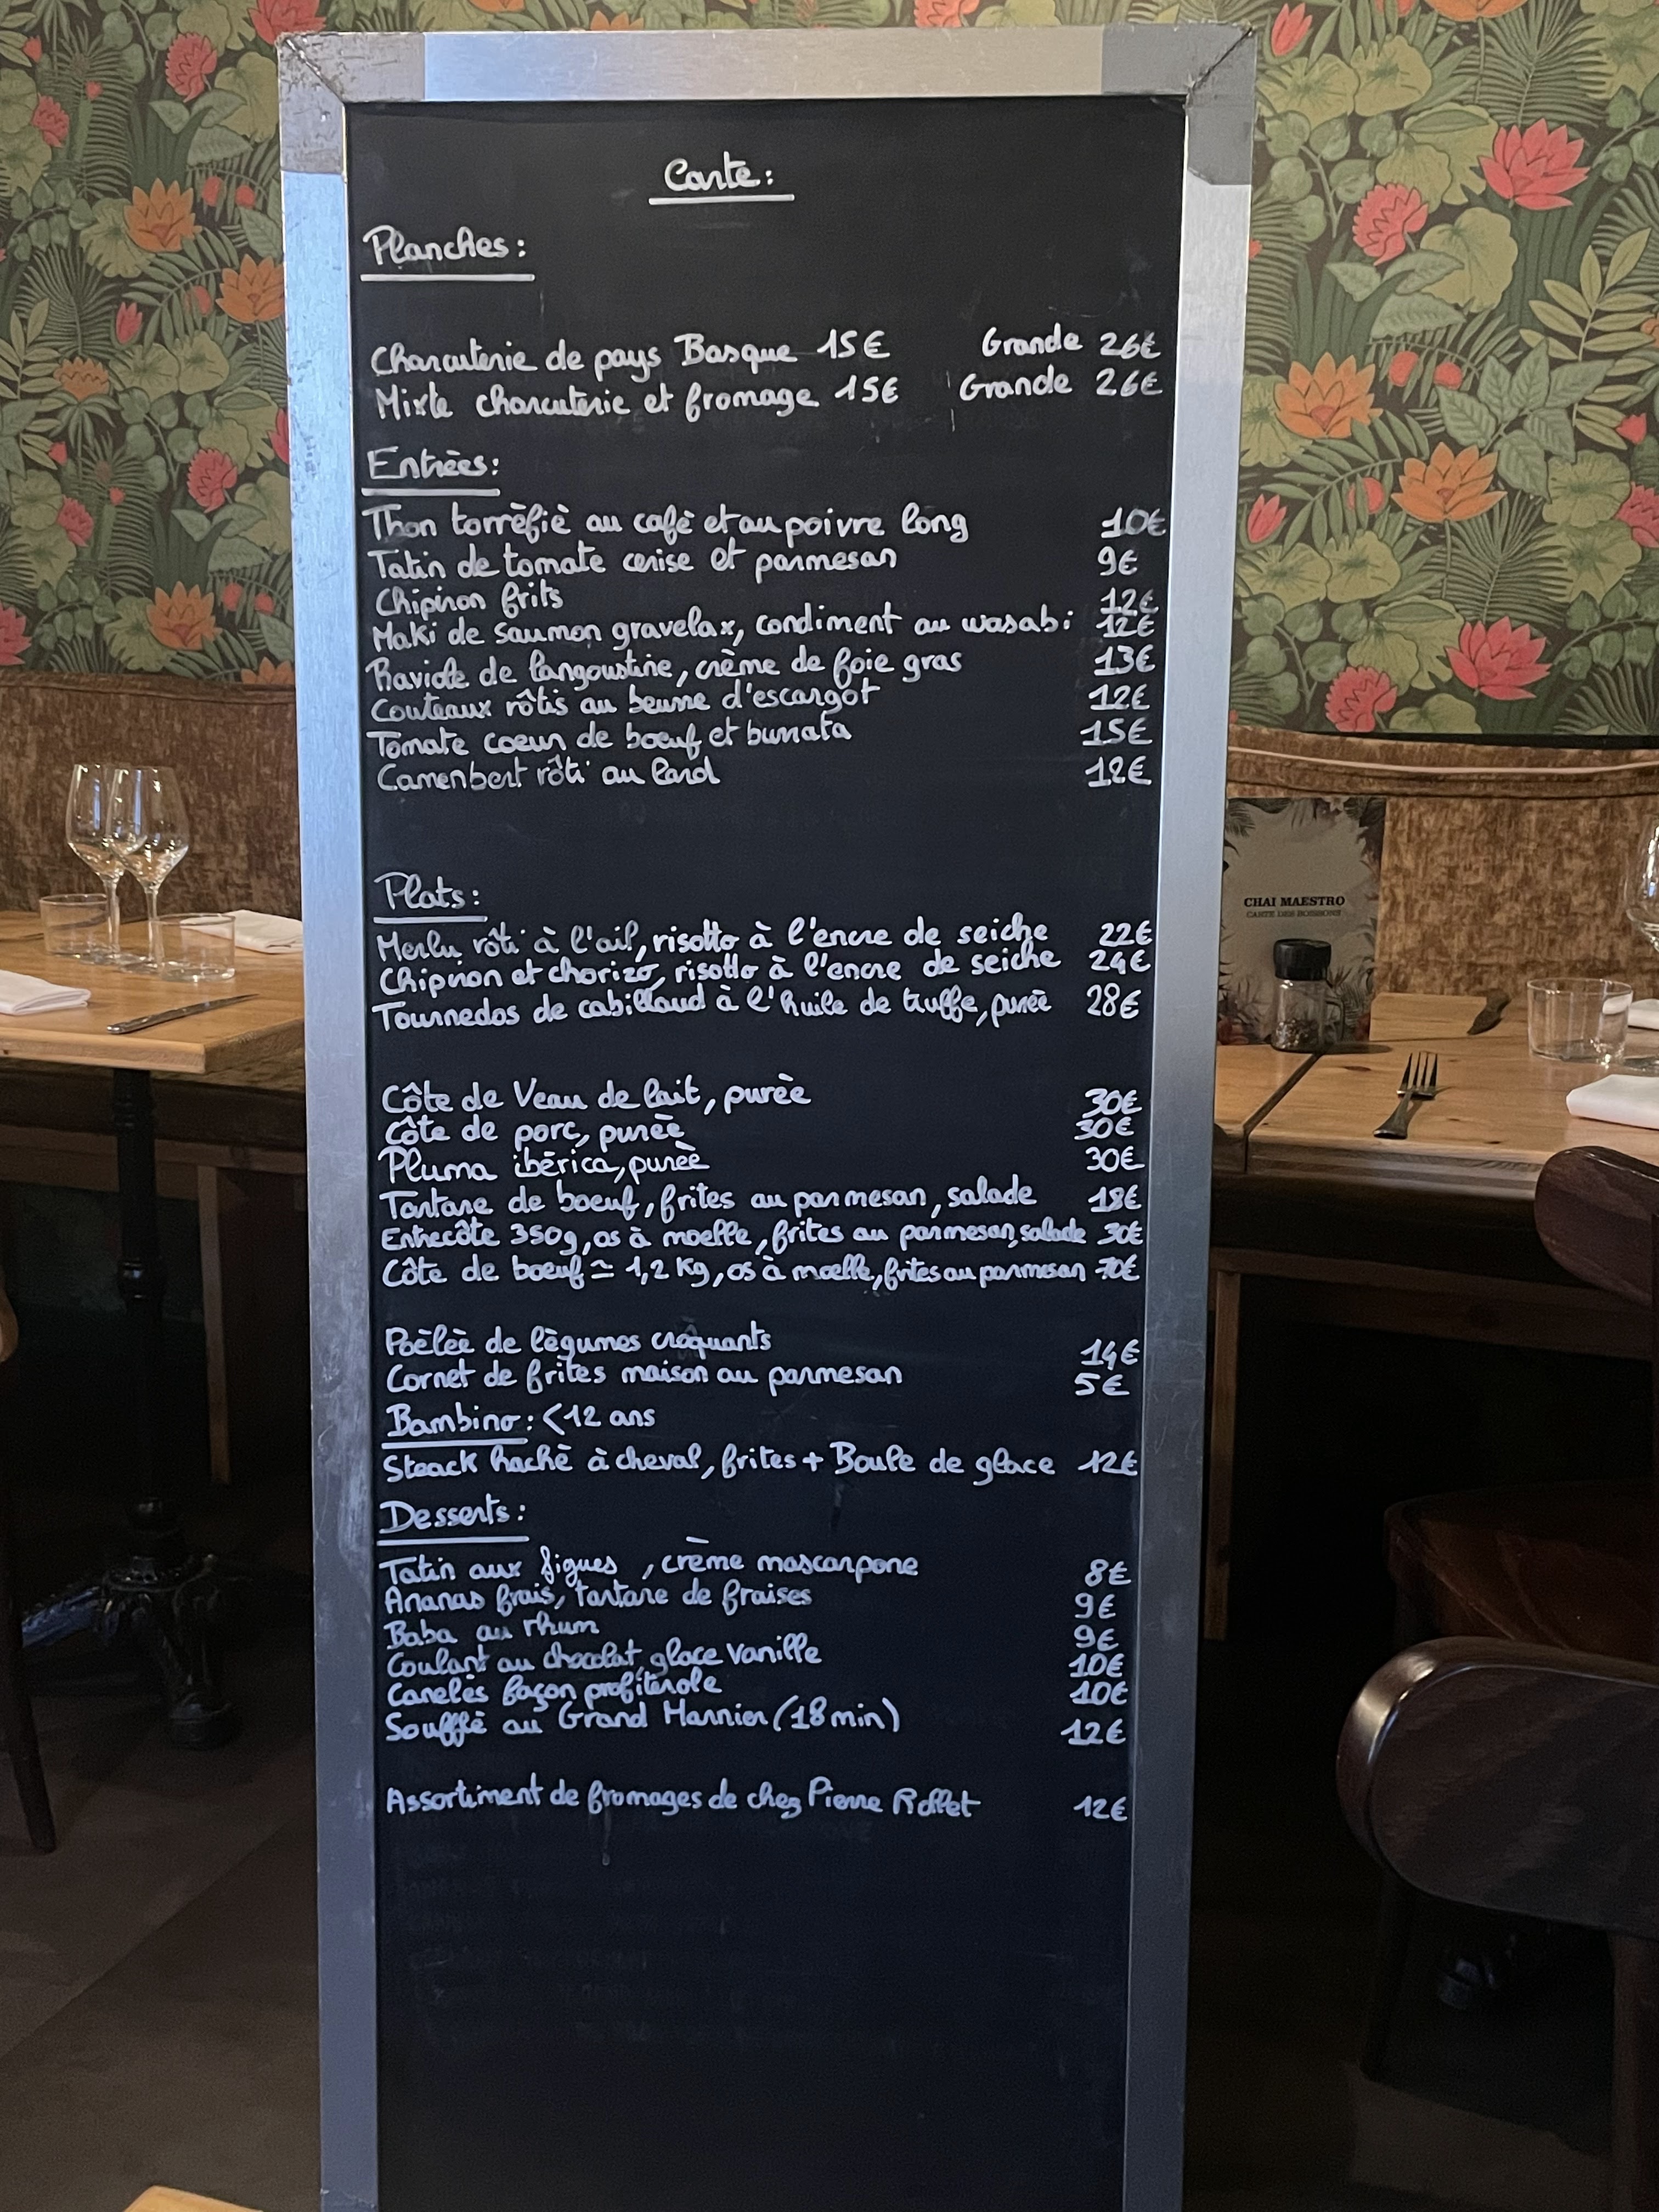 Carte:
Planches:
Charcuterie de pays Basque 15€ Grande 26€
Mixte charcuterie et fromage 15€ Grande 26€
Entrèes:
Thon torrèfiè au cafè et au poivre long 10€
Tatin de tomate cerise et parmesan 9€
Chipiron frits 12€
Maki de saumon gravelax, condiment au wasabi 12€
Raviole de langoustine, crème de foie gras 13€
Couteaux rôtis au beurre d'escargot 12€
Tomate coeur de boeuf et burrata 15€
Camenbert rôti au lard 12€
Plats:
Merlu rôti à l'ail, risotto à l'encre de seiche 22€
Chipiron et chorizo, risotto à l'encre de seiche 24€
Tournedos de cabillaud à l'huile de truffe, purèe 28€
Côte de Veau de lait, purèe 30€
Côte de porc, purèe 30€
Pluma ibèrica, purèe 30€
Tartare de boeuf, frites au parmesan, salade 18€
Entrecôte 350g, os à moelle, frites au parmesan, salade 30€
Côte de boeuf ≃ 1,2 Kg, os à moelle, frites au parmesan 70€
Poèlèe de lègumes croquants 14€
Cornet de frites maison au parmesan 5€
Bambino: <12 ans
Steack hachè à cheval, frites + Boule de glace 12€
Desserts:
Tatin aux figues, crème mascarpone 8€
Ananas frais, tartare de fraises 9€
Baba au rhum 9€
Coulant au chocolat, glace vanille 10€
Canelès façon profiterole 10€
Soufflè au Grand Marnier (18 min) 12€
Assortiment de fromages de chez Pierre Rollet 12€
CHAI MAESTRO
CARTE DES BOISSONS